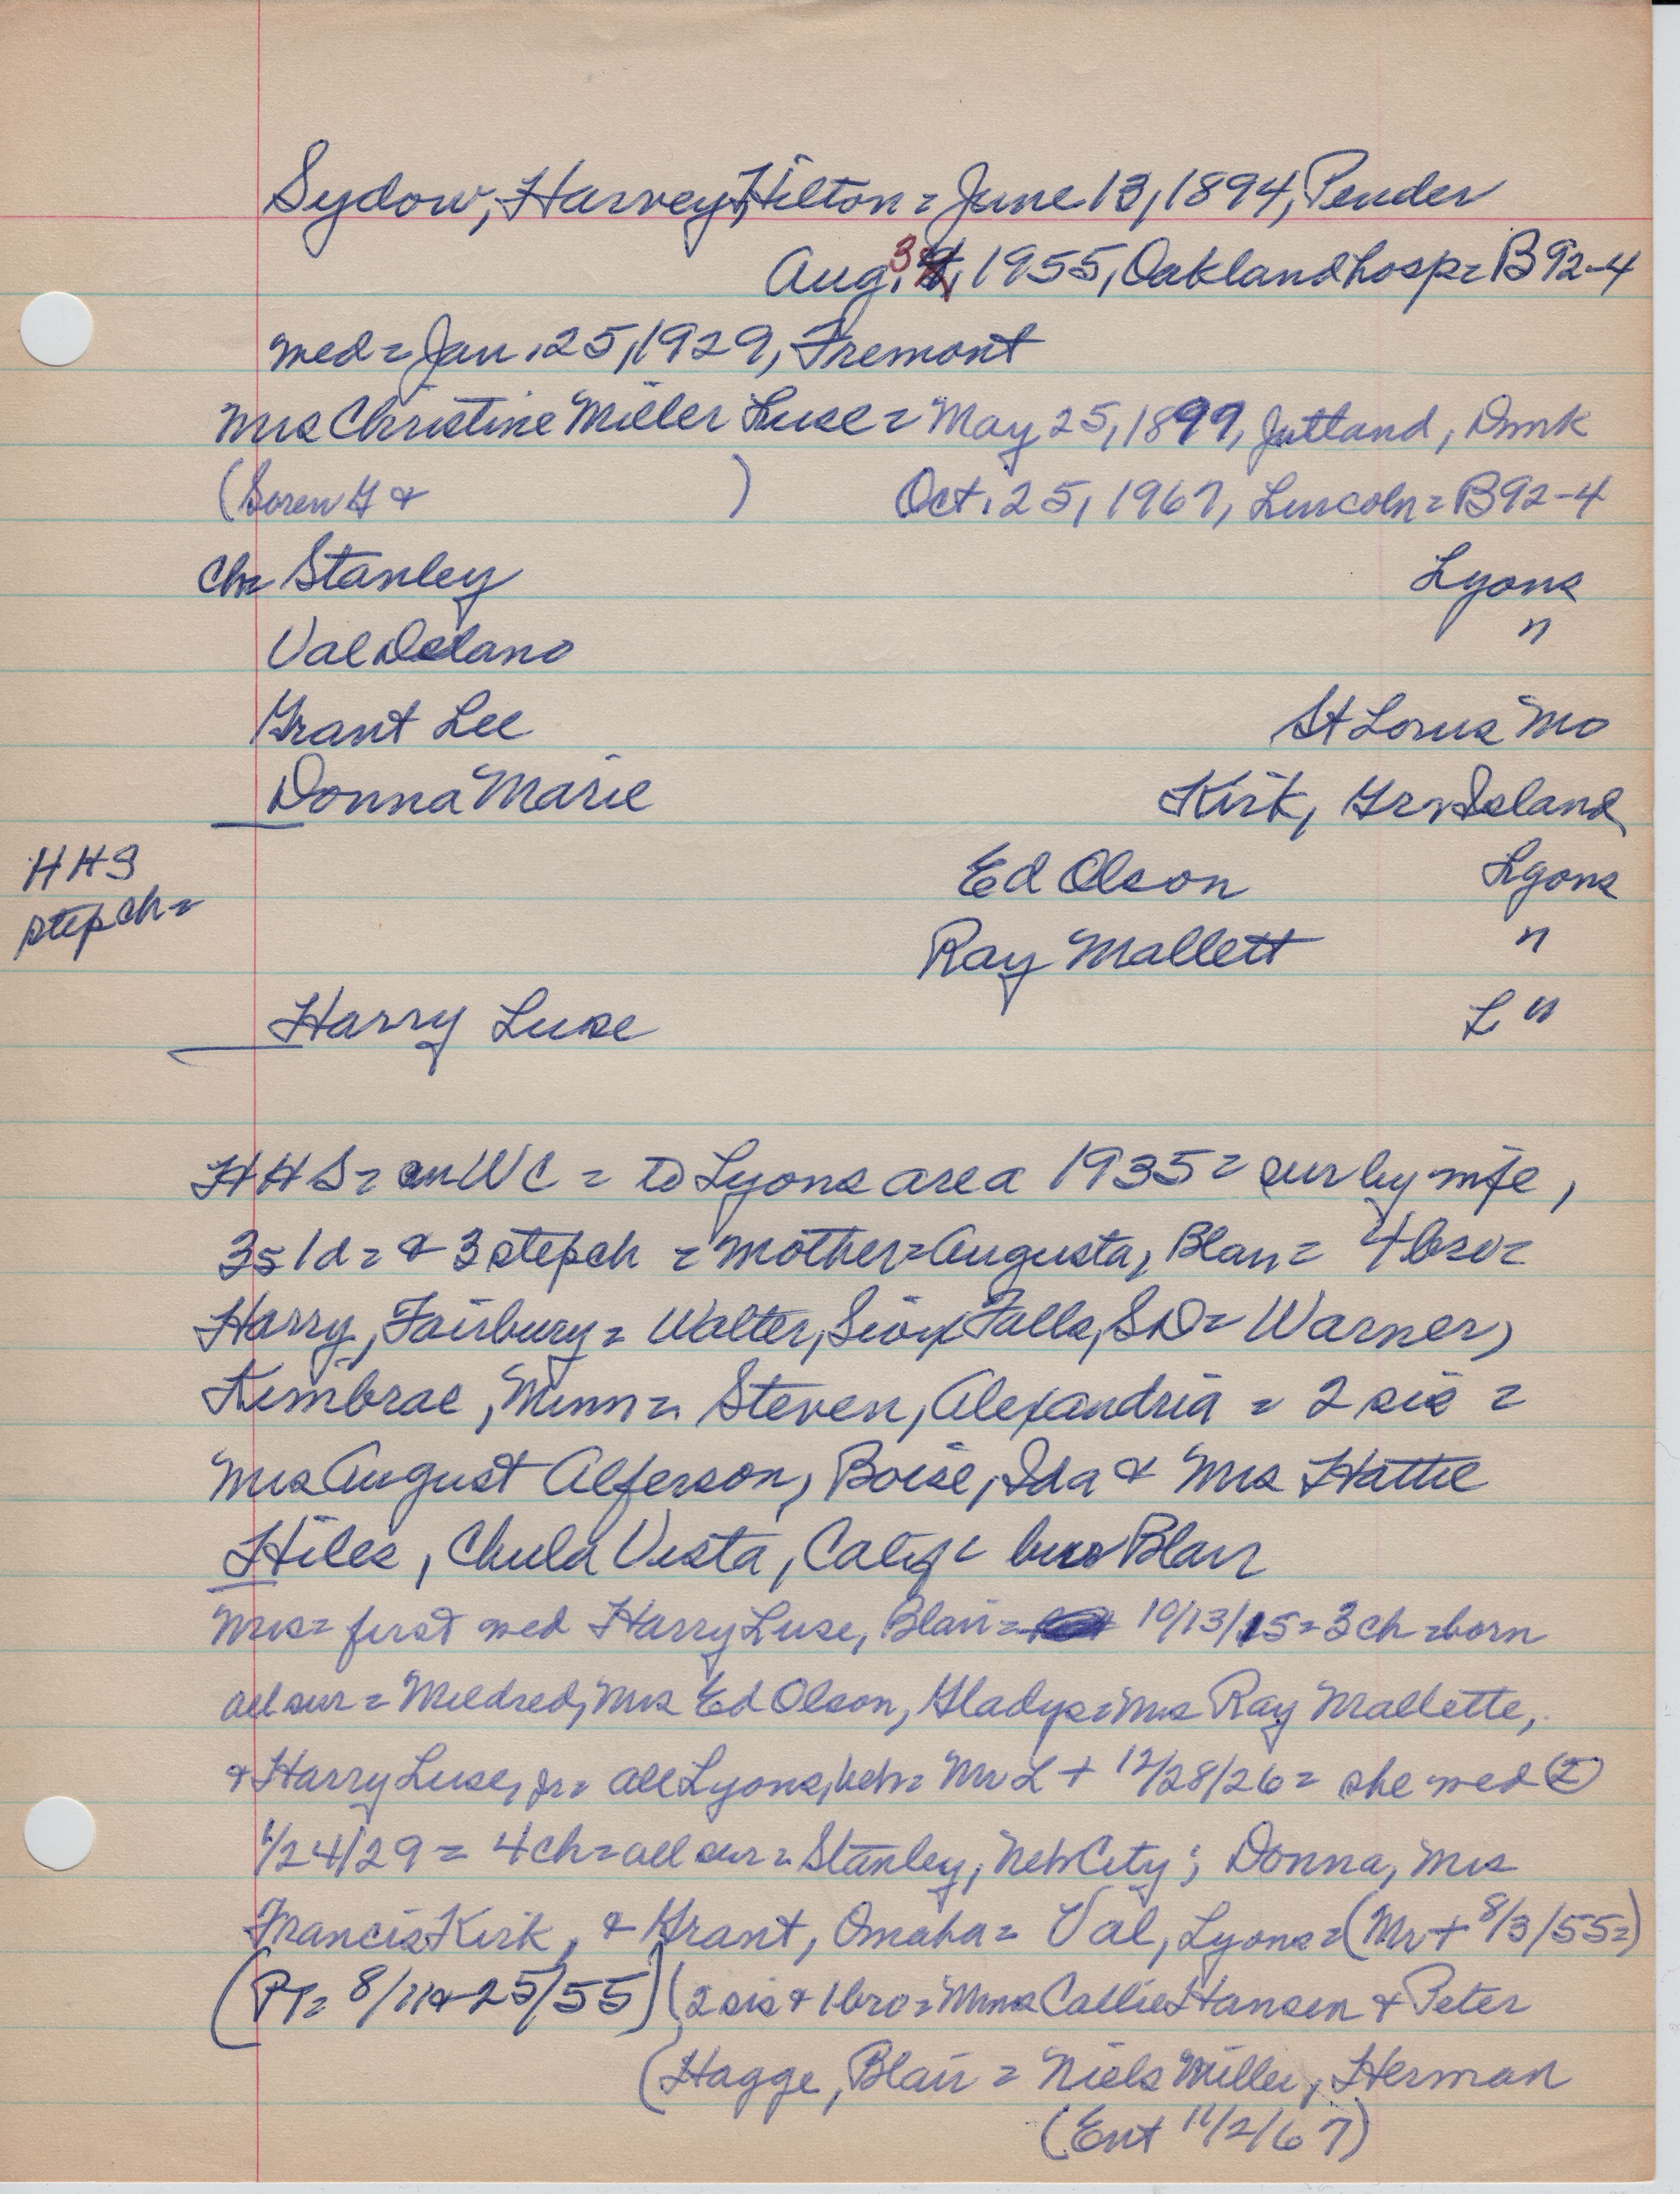 Sydow, Harvey Hilton = June 13, 1894, Pender
Aug. 3, 1955, Oakland hosp = B92-4
wed = Jan. 25, 1929, Fremont
Mrs Christine Miller Luse = May 25, 1899, Jutland, Dmk
(Soren G & ) Oct. 25, 1967, Lincoln = B92-4
Ch = Stanley Lyons
Val Delano "
Grant Lee St Louis Mo
Donna Marie Kirk, Gr Island
HHS Ed Olson Lyons
step ch = Ray Mallett "
Harry Luse L "
HHS = in WC = to Lyons area 1935 = sur by wife,
3s 1d = & 3 step ch = mother = Augusta, Blair = 4 bro =
Harry, Fairbury = Walter, Sioux Falls, SD = Warner,
Kimbrae, Minn = Steven, Alexandria = 2 sis =
Mrs August Alferson, Boise, Ida & Mrs Hattie
Hiles, Chula Vista, Calif = bur Blair
Mrs = first wed Harry Luse, Blair = 10/13/15 = 3 ch = born
all sur = Mildred, Mrs Ed Olson, Gladys = Mrs Ray Mallette,
& Harry Luse, jr = all Lyons, Neb = Mr L + 12/28/26 = she wed (2)
1/24/29 = 4 ch = all sur = Stanley, Neb City; Donna, Mrs
Francis Kirk, & Grant, Omaha = Val, Lyons = (Mr + 8/3/55 =)
(PT = 8/11 & 25/55) (2 sis & 1 bro = Mmes Callie Hansen & Peter
(Hagge, Blair = Niels Miller, Herman
(Ent 11/2/67)